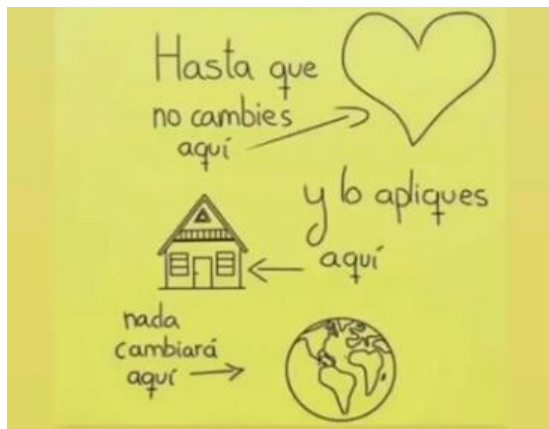 Hasta que
no cambies
aquí
y lo apliques
aquí
nada
cambiará
aquí